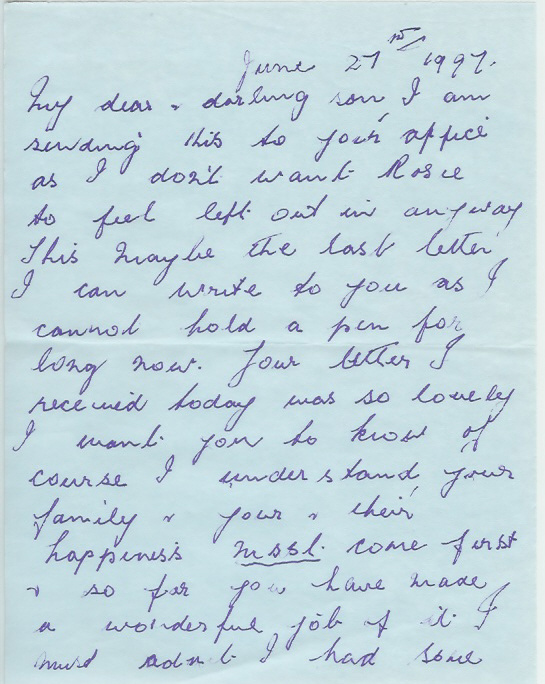 June 21st/ 1997.
My dear & darling son I am
sending this to your office
as I don't want Rosie
to feel left out in anyway
This maybe the last letter
I can write to you as I
cannot hold a pen for
long now. Your letter I
received today was so lovely
I want you to know of
course I understand your
family & your & their
happiness must come first
& so far you have made
a wonderful job of it. I
must admit I had some